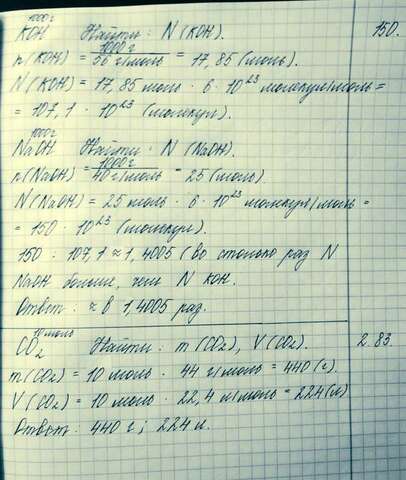 1000г
KOH Найти: N (KOH). 150.
n(KOH) = 1000г / 56 г/моль = 17,85 (моль).
N (KOH) = 17,85 моль · 6 · 10²³ молекул/моль =
= 107,1 · 10²³ (молекул).
1000г
NaOH Найти: N (NaOH).
n(NaOH) = 1000г / 40 г/моль = 25 (моль)
N (NaOH) = 25 моль · 6 · 10²³ молекул/моль =
= 150 · 10²³ (молекул).
150 : 107,1 ≈ 1,4005 (во столько раз N
NaOH больше, чем N KOH.
Ответ: ≈ в 1,4005 раз.
10 моль
CO₂ Найти: m (CO₂), V (CO₂). 2.83.
m(CO₂) = 10 моль · 44 г/моль = 440 (г).
V (CO₂) = 10 моль · 22,4 л/моль = 224 (л)
Ответ: 440 г; 224 л.